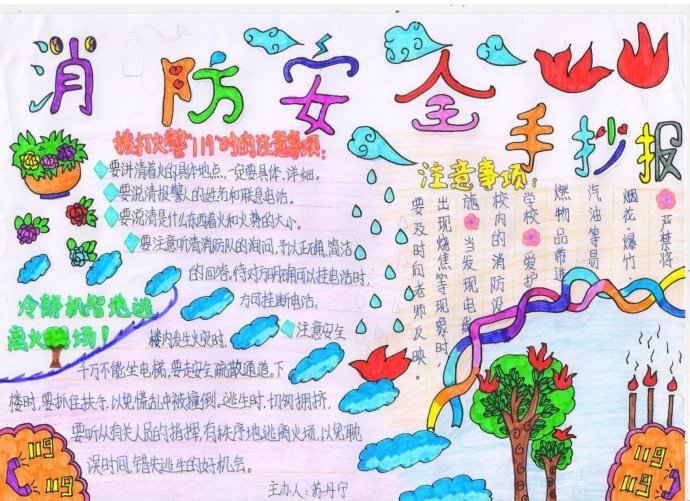 消防安全手抄报
拨打火警"119"时的注意事项:
要讲清着火的具体地点,一定要具体、详细。
要说清报警人的姓名和联系电话。
要说清是什么东西着火和火势的大小。
要注意听清消防队的询问,予以正确,简洁
的回答,待对方明确可以挂电话时,
方可挂断电话。
冷静机智地逃
离火场!
注意安全
楼内发生火灾时,
千万不能坐电梯,要走安全疏散通道。下
楼时,要抓住扶手,以免慌乱中被撞倒。逃生时,切勿拥挤,
要听从有关人员的指挥,有秩序地逃离火场,以免耽
误时间,错失逃生的好机会。
注意事项:
严禁将
烟花、爆竹
汽油等易
燃物品带进
学校 爱护
校内的消防设
施 当发现电线
出现烧焦等现象时
要及时向老师反映。
119
119
119
119
主办人:苏丹宁